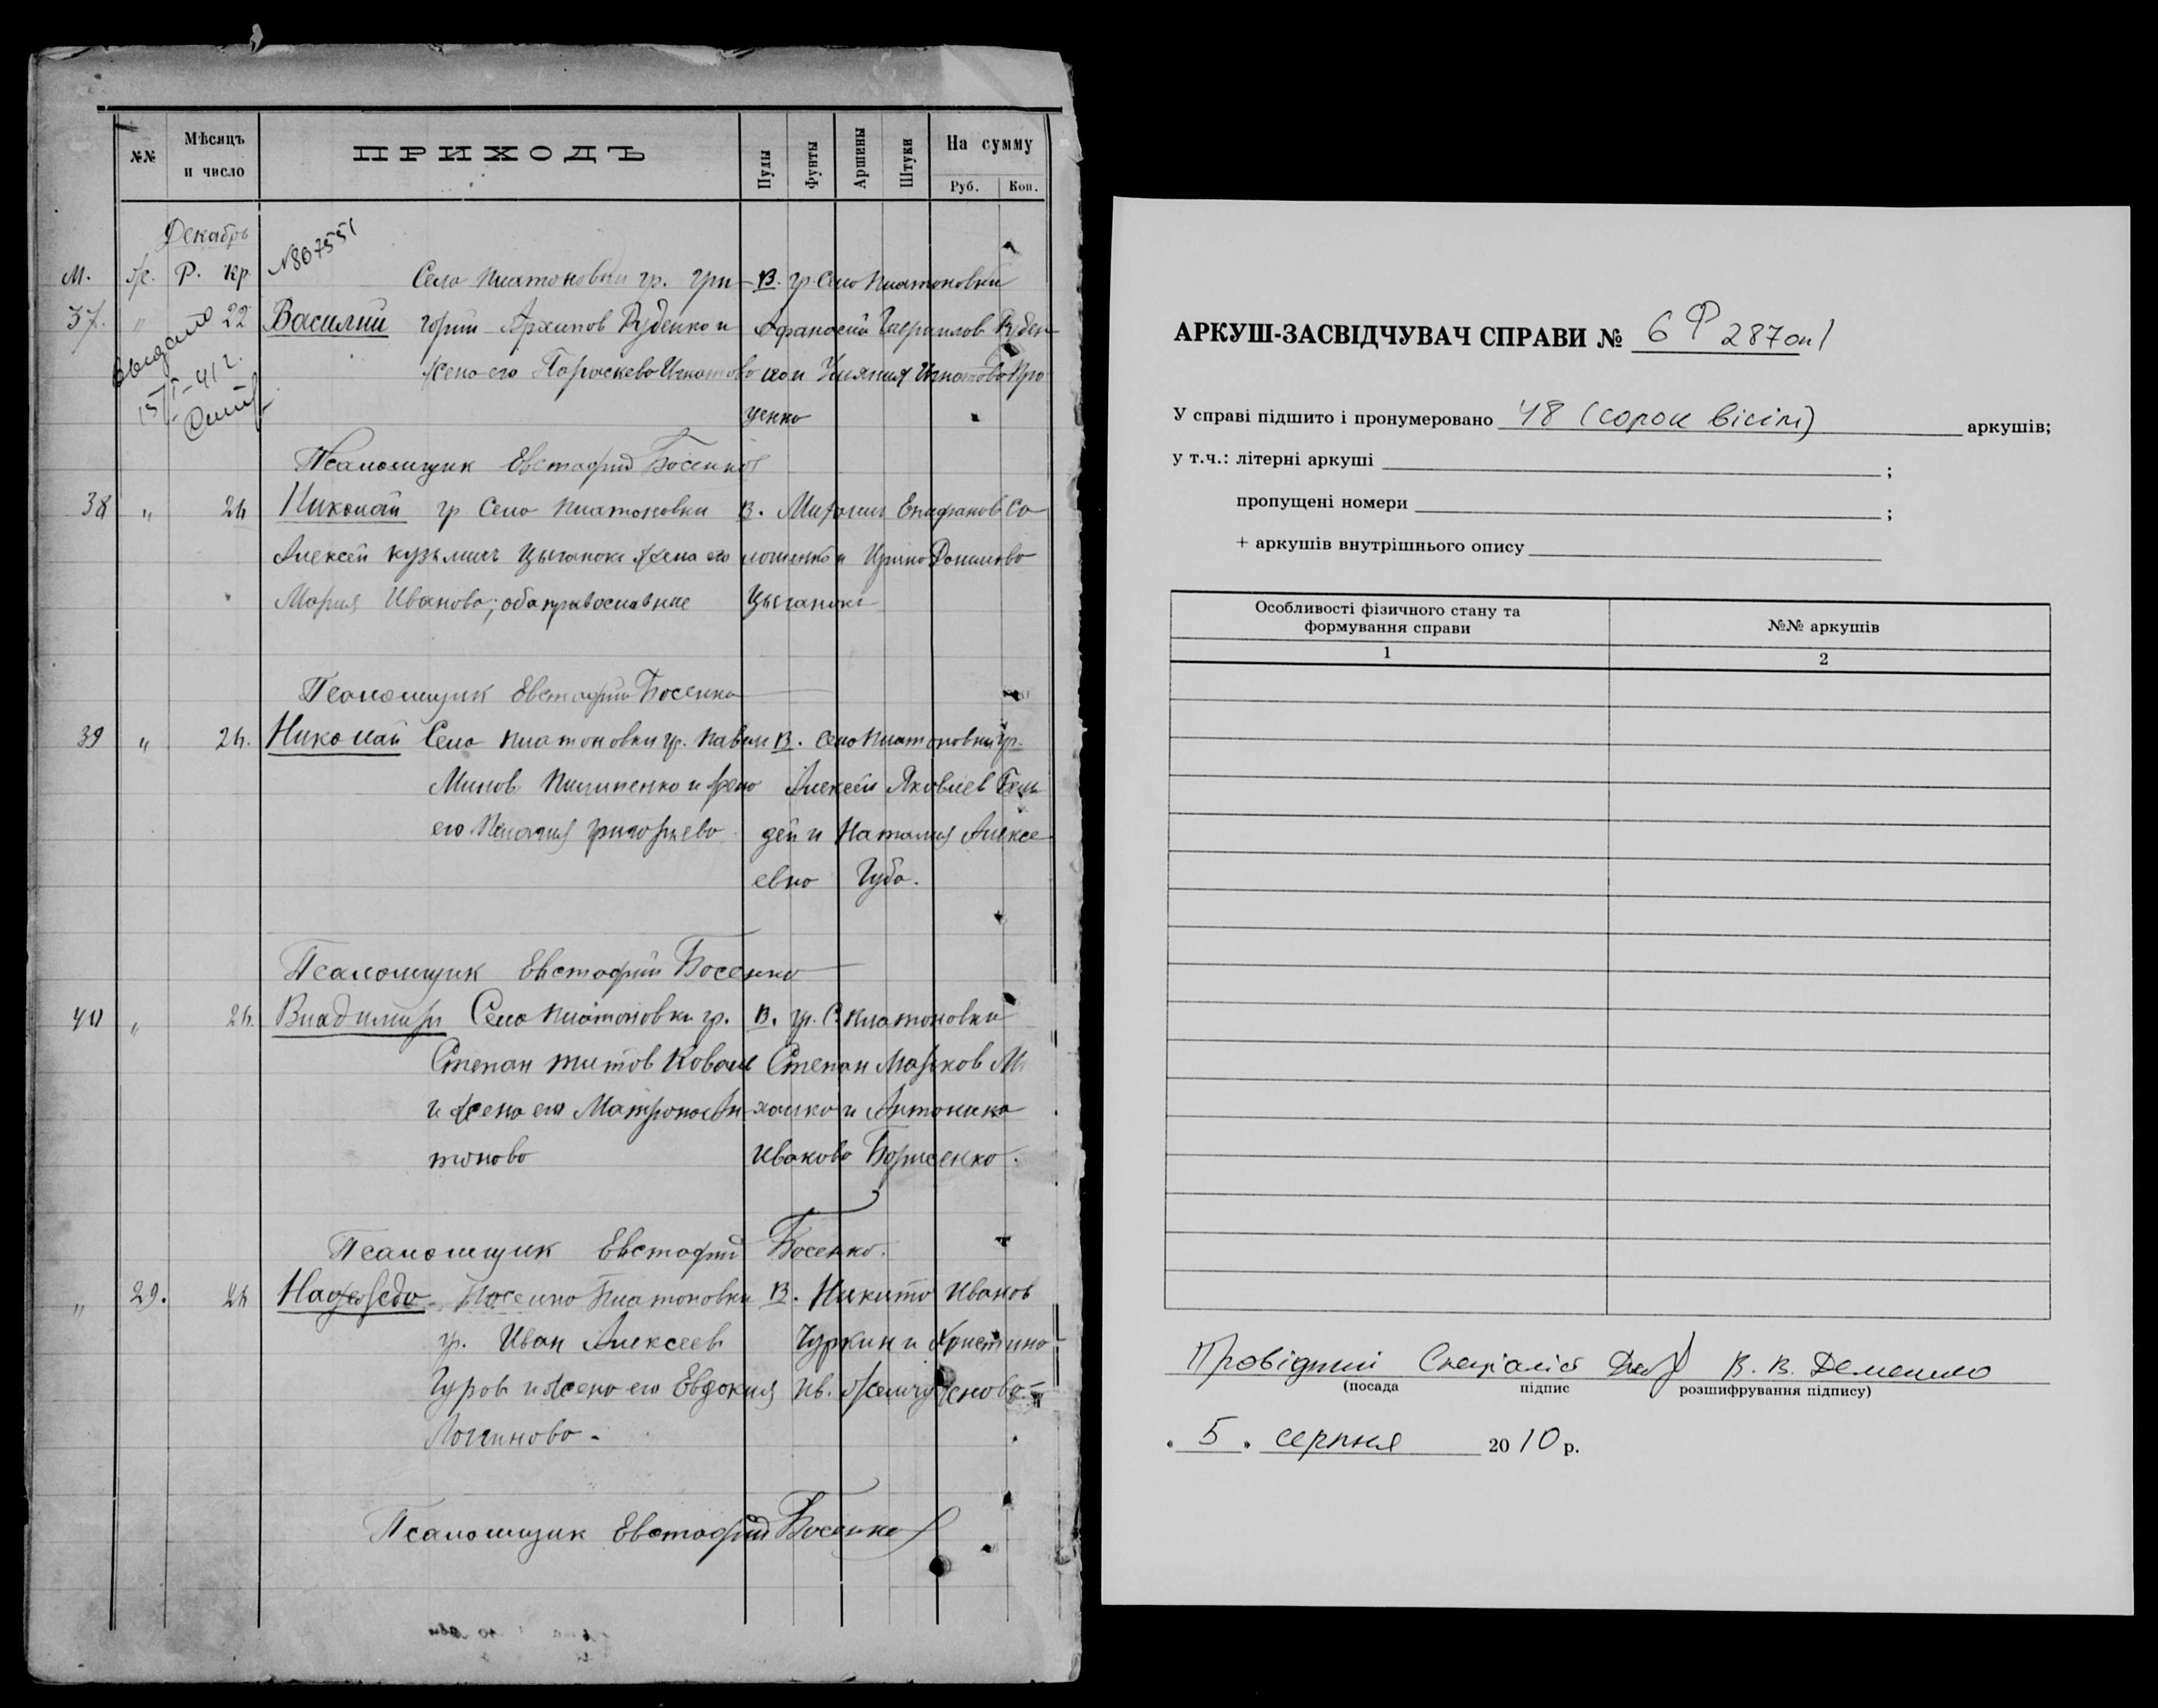 №№
Мѣсяцъ
и число
ПРИХОДЪ
Пуды
Фунты
Аршины
Штуки
На сумму
Руб.
Коп.
Декабрь
М. ж. Р. Кр
№867551
Село Платоновки гр. Гри- В. гр. Село Платоновки
37. " 22 Василий горий Архипов Руденко и Афанасий Гаврилов Руден-
Выдано
15/I-41 г.
жена его Параскева Игнатова ко и Игнатова
ценко
Псаломщик Евстафий Босенко
38 " 24 Николай гр Село Платоновки В. Епифанов Со
Алексей Кузьмич Цыганок жена его лошенко и Ирина Данилова
Мария Иванова; оба православные Цыганок
Псаломщик Евстафий Босенко
39 " 24. Николай Село Платоновки гр. Павел В. Село Платоновки гр.
Минов Пилипенко и жена Алексей Яковлев
его Пелагия Григорьева дей и Наталия Алексе
евна Губа.
Псаломщик Евстафий Босенко
40 " 24. Владимир Село Платоновки гр. В. гр. С. Платоновки
Степан Титов Коваль Степан Марков М
и жена его Матрона Ан- халко и Антонина
тонова Иванова Борисенко.
Псаломщик Евстафий Босенко.
" 29. 24 Надежда Платоновки В. Никита Иванов
гр. Иван Алексеев Чуркин и Христина
Гуров и жена его Евдокия Ив.
Логинова -
Псаломщик Евстафий Босенко
АРКУШ-ЗАСВІДЧУВАЧ СПРАВИ № 6 Ф 287 оп 1
У справі підшито і пронумеровано 48 (сорок вісім) аркушів;
у т.ч.: літерні аркуші ;
пропущені номери ;
+ аркушів внутрішнього опису
Особливості фізичного стану та
формування справи
№№ аркушів
1
2
Провідний Спеціаліст В. В. Деменко
(посада підпис розшифрування підпису)
" 5 " серпня 2010 р.